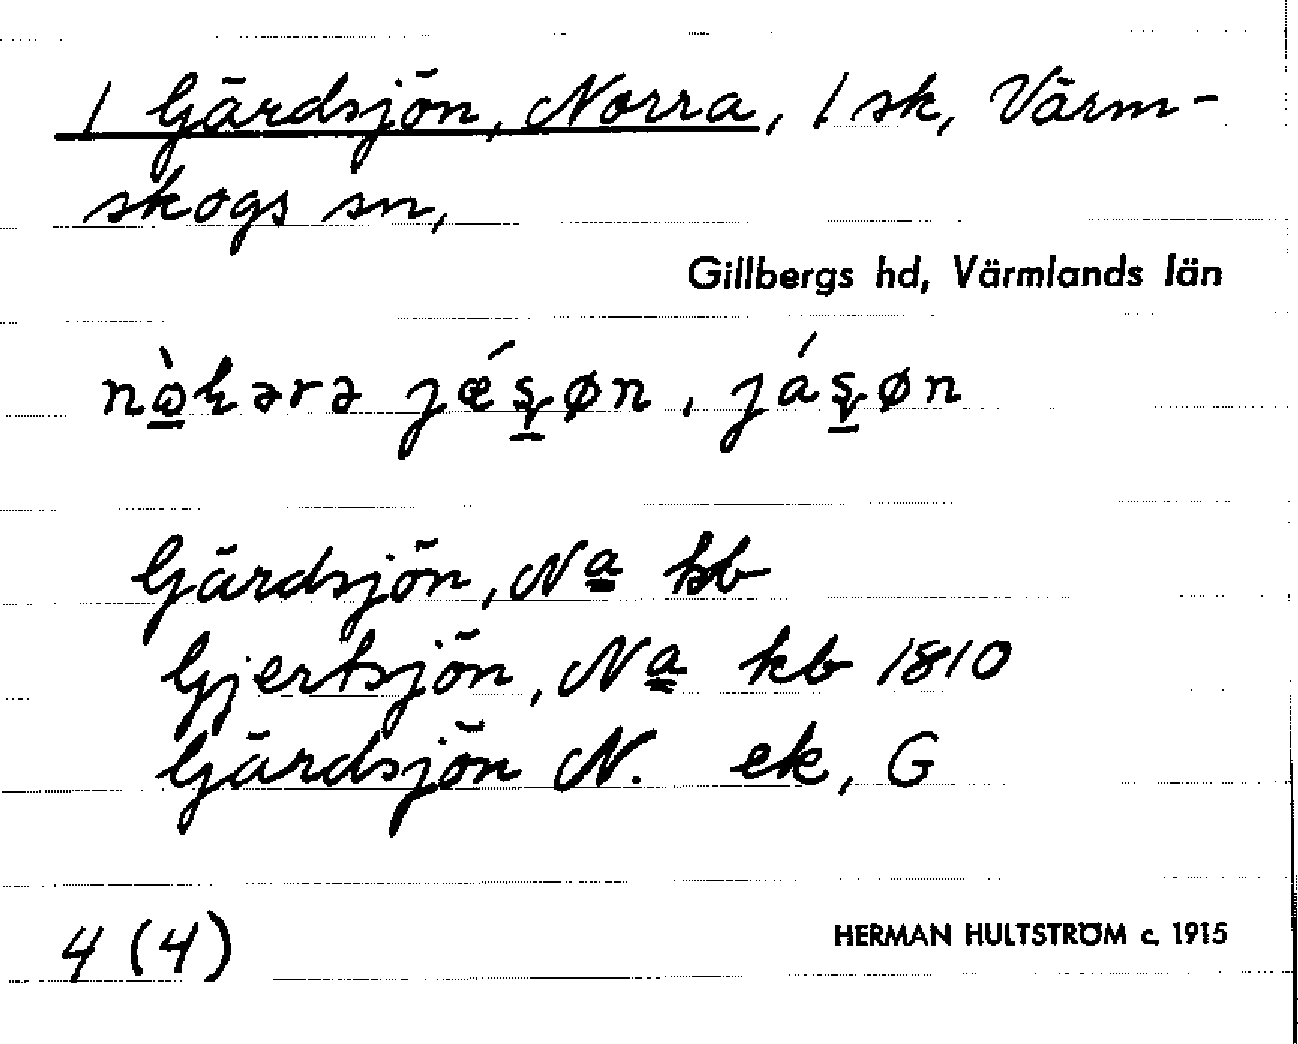 1 Gärdsjön, Norra, 1 sk, Värm-
skogs sn,
Gillbergs hd, Värmlands län
jǽʂøn, jáʂøn
Gärdsjön, Na kb
Gjertsjön, Na kb 1810
Gärdsjön N. ek, G
4 (4)
HERMAN HULTSTRÖM c. 1915